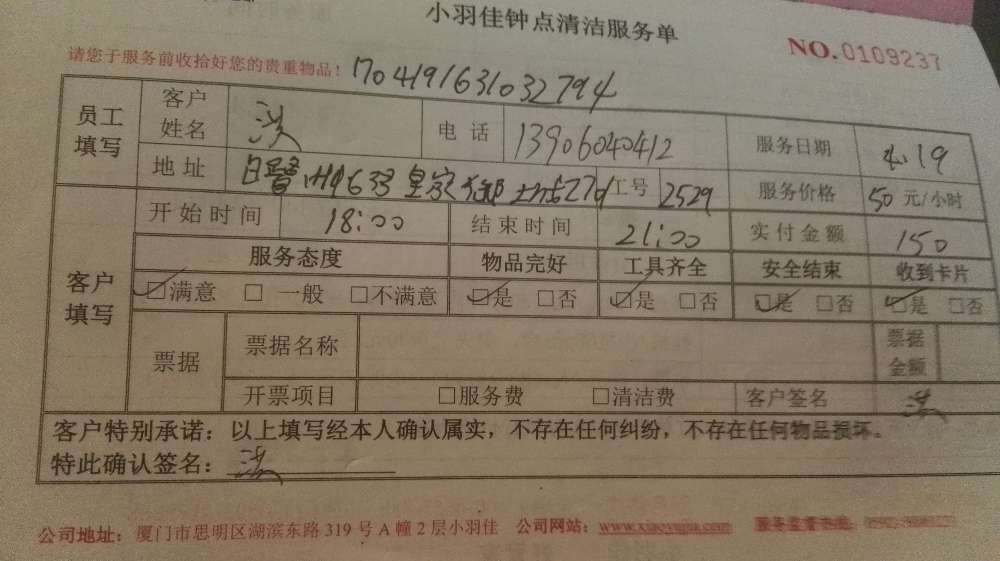 小羽佳钟点清洁服务单
NO.0109237
请您于服务前收拾好您的贵重物品！ 1704191631032794
员工填写 客户姓名 洪 电话 13906040412 服务日期 4.19
地址 工号 2529 服务价格 50 元/小时
开始时间 18:00 结束时间 21:00 实付金额 150
客户填写 服务态度 物品完好 工具齐全 安全结束 收到卡片
☑满意 □一般 □不满意 ☑是 □否 ☑是 □否 ☑是 □否 ☑是 □否
票据 票据名称 票据金额
开票项目 □服务费 □清洁费 客户签名 洪
客户特别承诺：以上填写经本人确认属实，不存在任何纠纷，不存在任何物品损坏。
特此确认签名：洪
公司地址：厦门市思明区湖滨东路 319 号 A 幢 2 层小羽佳 公司网站：www.xiaoyujia.com